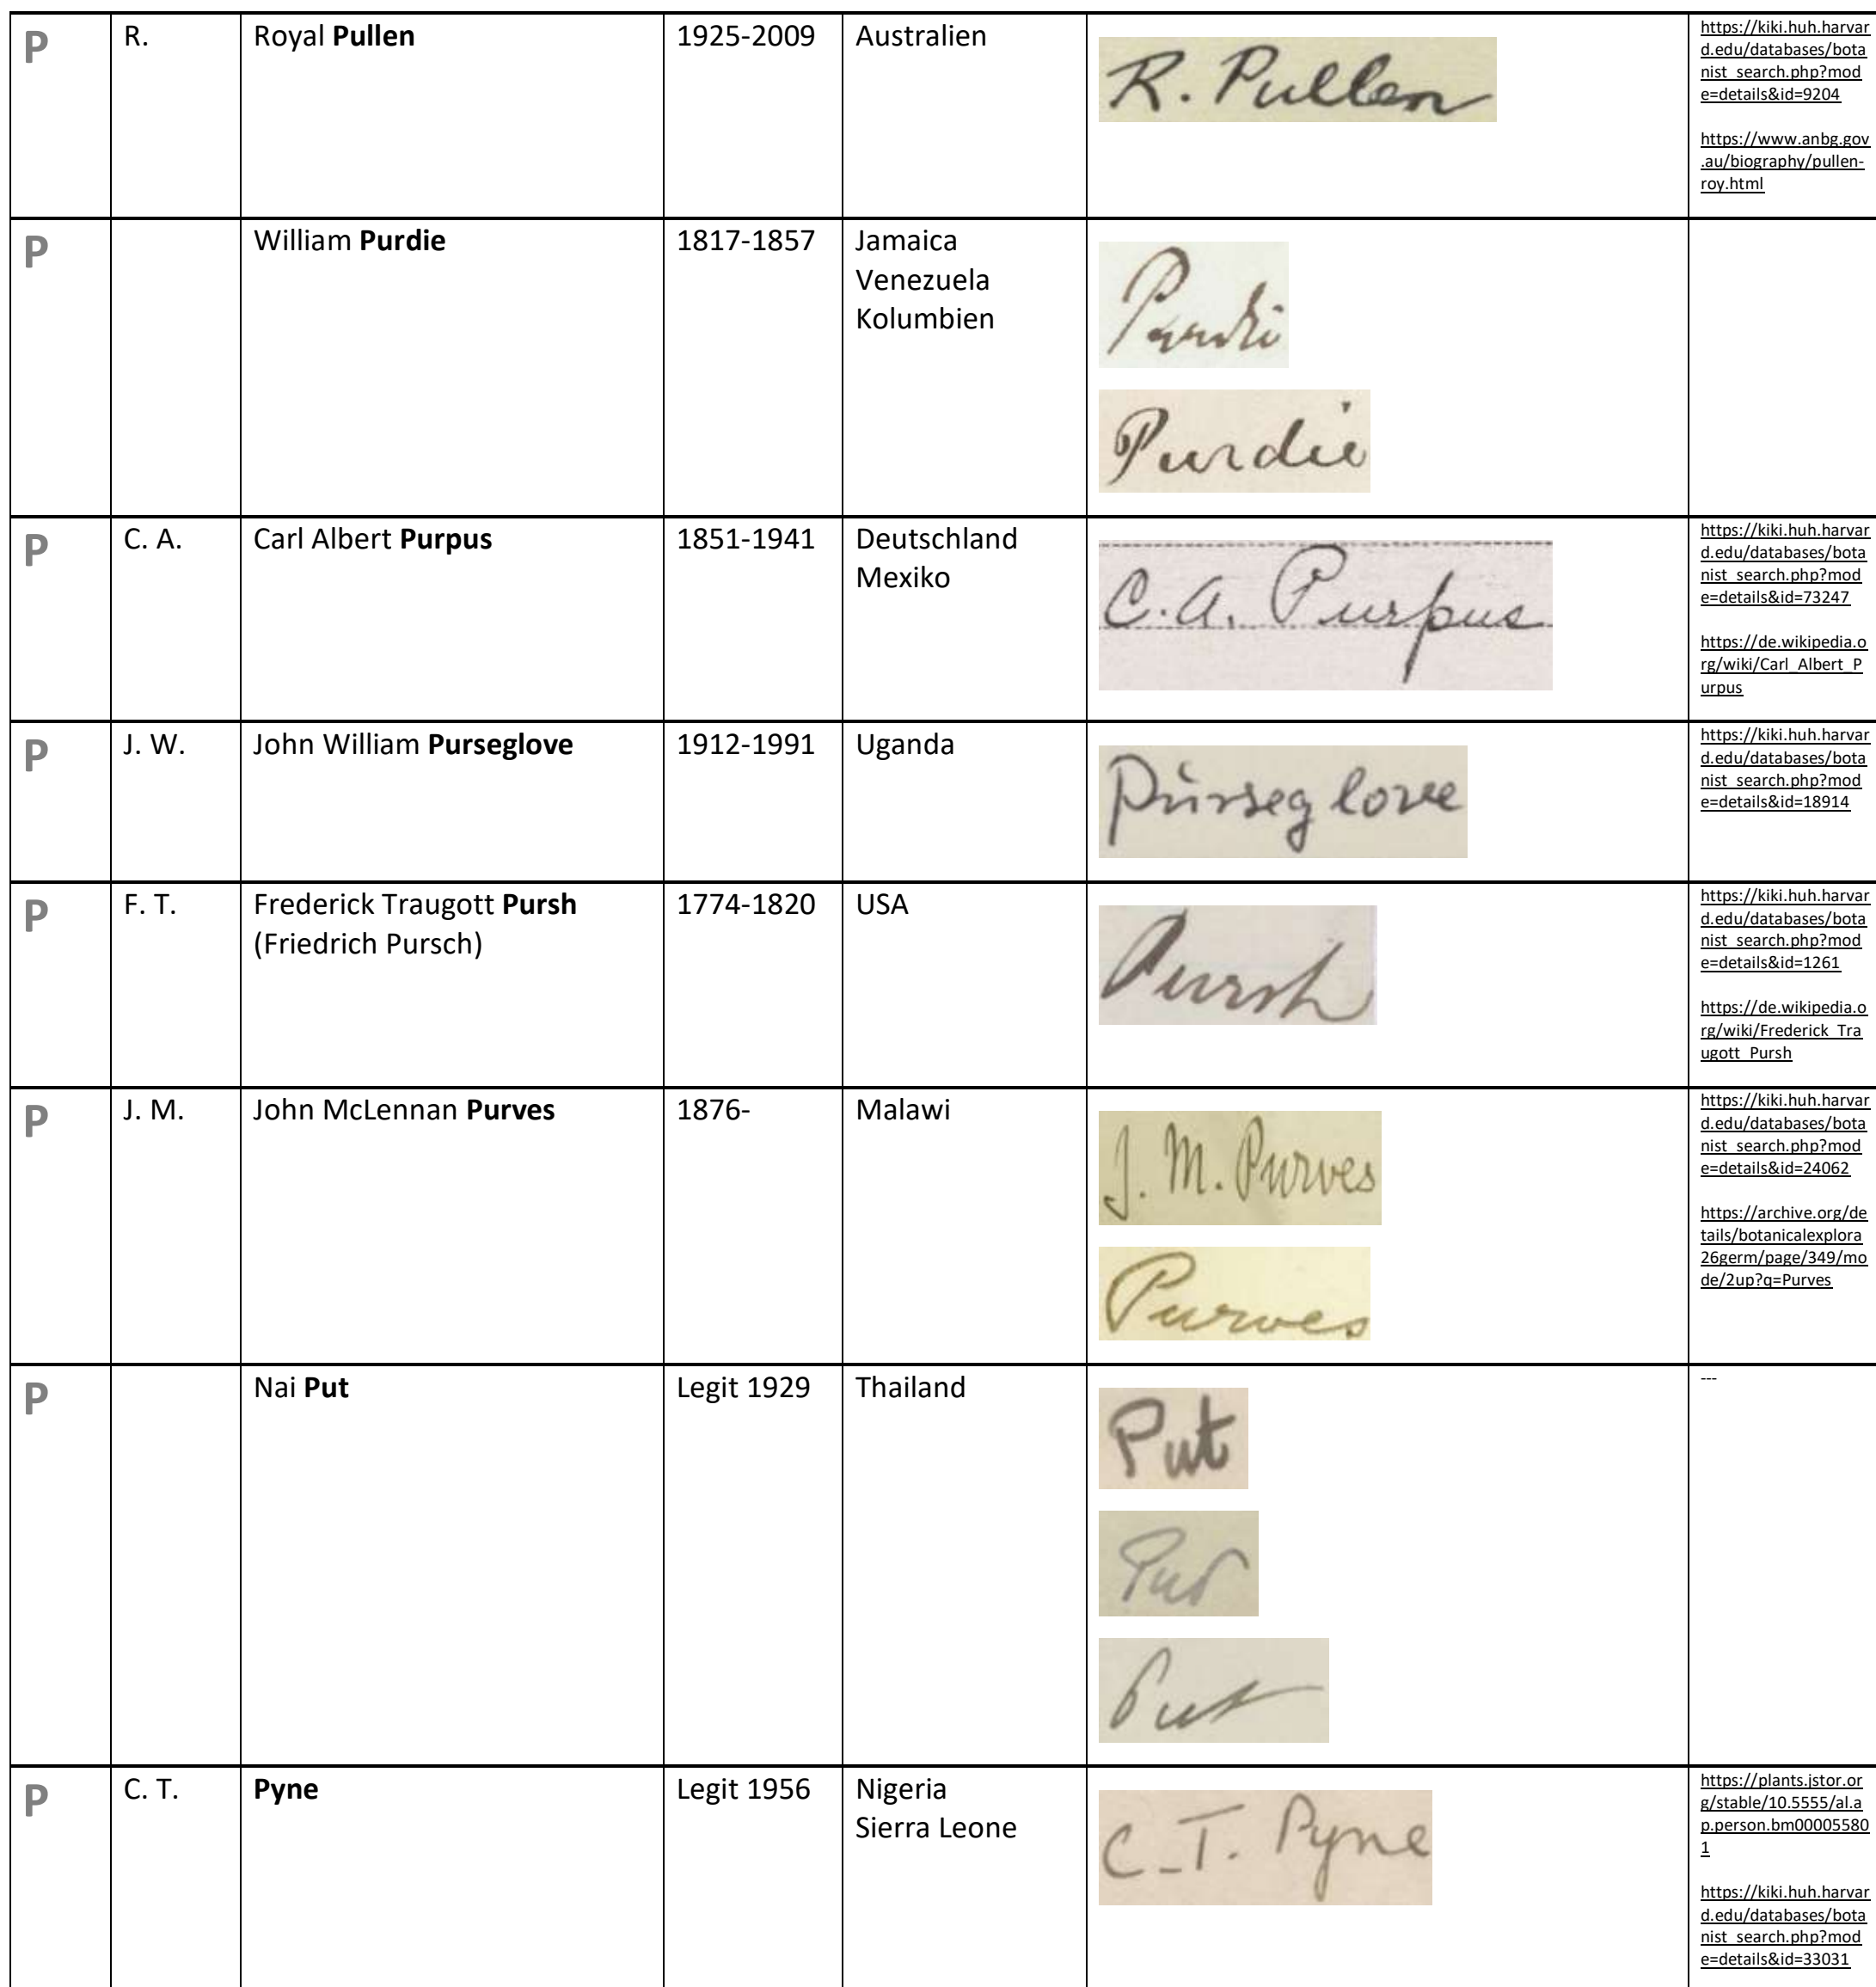 P R. Royal Pullen 1925-2009 Australien R. Pullen https://kiki.huh.harvar
d.edu/databases/bota
nist_search.php?mod
e=details&id=9204
https://www.anbg.gov
.au/biography/pullen-
roy.html
P William Purdie 1817-1857 Jamaica
Venezuela
Kolumbien
Purdie
Purdie
P C. A. Carl Albert Purpus 1851-1941 Deutschland
Mexiko
C. A. Purpus
https://kiki.huh.harvar
d.edu/databases/bota
nist_search.php?mod
e=details&id=73247
https://de.wikipedia.o
rg/wiki/Carl_Albert_P
urpus
P J. W. John William Purseglove 1912-1991 Uganda
Purseglove
https://kiki.huh.harvar
d.edu/databases/bota
nist_search.php?mod
e=details&id=18914
P F. T. Frederick Traugott Pursh 1774-1820 USA
(Friedrich Pursch)
Pursh
https://kiki.huh.harvar
d.edu/databases/bota
nist_search.php?mod
e=details&id=1261
https://de.wikipedia.o
rg/wiki/Frederick_Tra
ugott_Pursh
P J. M. John McLennan Purves 1876- Malawi
J. M. Purves
Purves
https://kiki.huh.harvar
d.edu/databases/bota
nist_search.php?mod
e=details&id=24062
https://archive.org/de
tails/botanicalexplora
26germ/page/349/mo
de/2up?q=Purves
P Nai Put Legit 1929 Thailand ---
Put
Put
Put
P C. T. Pyne Legit 1956 Nigeria
Sierra Leone
C_T. Pyne
https://plants.jstor.or
g/stable/10.5555/al.a
p.person.bm00005580
1
https://kiki.huh.harvar
d.edu/databases/bota
nist_search.php?mod
e=details&id=33031